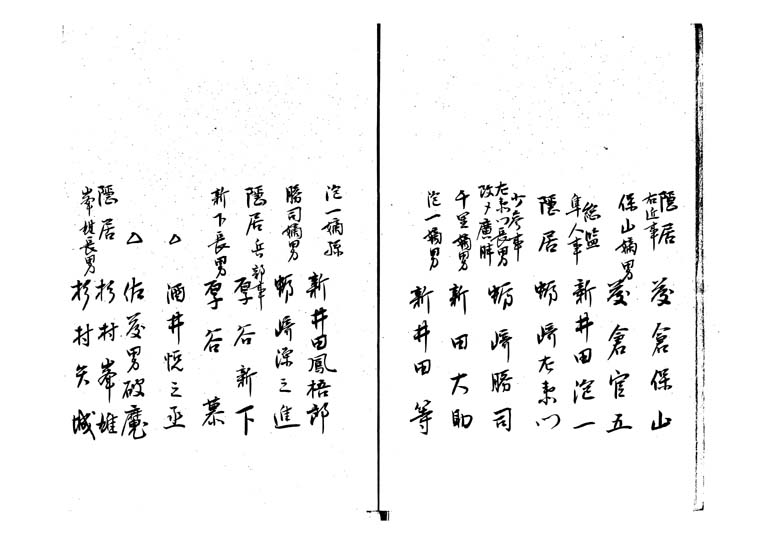 隠居 右近事 菱倉保山
保山嫡男 菱倉官五
総監 隼人事 新井田泡一
隠居 蛎崎右衛門
少参事 右衛門長男 改メ廣胖 蛎崎勝司
千里嫡男 新田大助
泡一嫡男 新井田等
泡一嫡孫 新井田鳳梧郎
勝司嫡男 蛎崎源之進
隠居 兵部事 厚谷新下
新下長男 厚谷慕
△ 酒井悦之丞
△ 佐菱男破魔
隠居 杉村峯雄
峯雄長男 杉村矢城